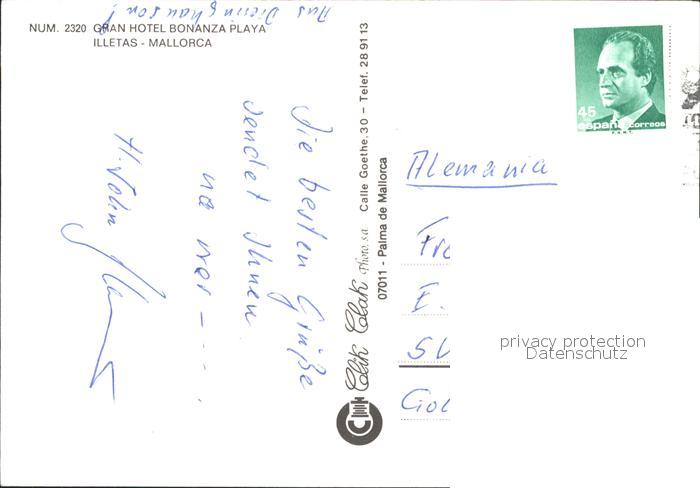 Aus Dieringhausen!
NUM. 2320 GRAN HOTEL BONANZA PLAYA
ILLETAS - MALLORCA
Die besten Grüße
sendet Ihnen
na wer - . . . .
Clik Clak Photo, s.a. Calle Goethe, 30 – Telef. 28 91 13
07011 - Palma de Mallorca
45
españa correos
Alemania
Fr
E.
privacy protection
Datenschutz